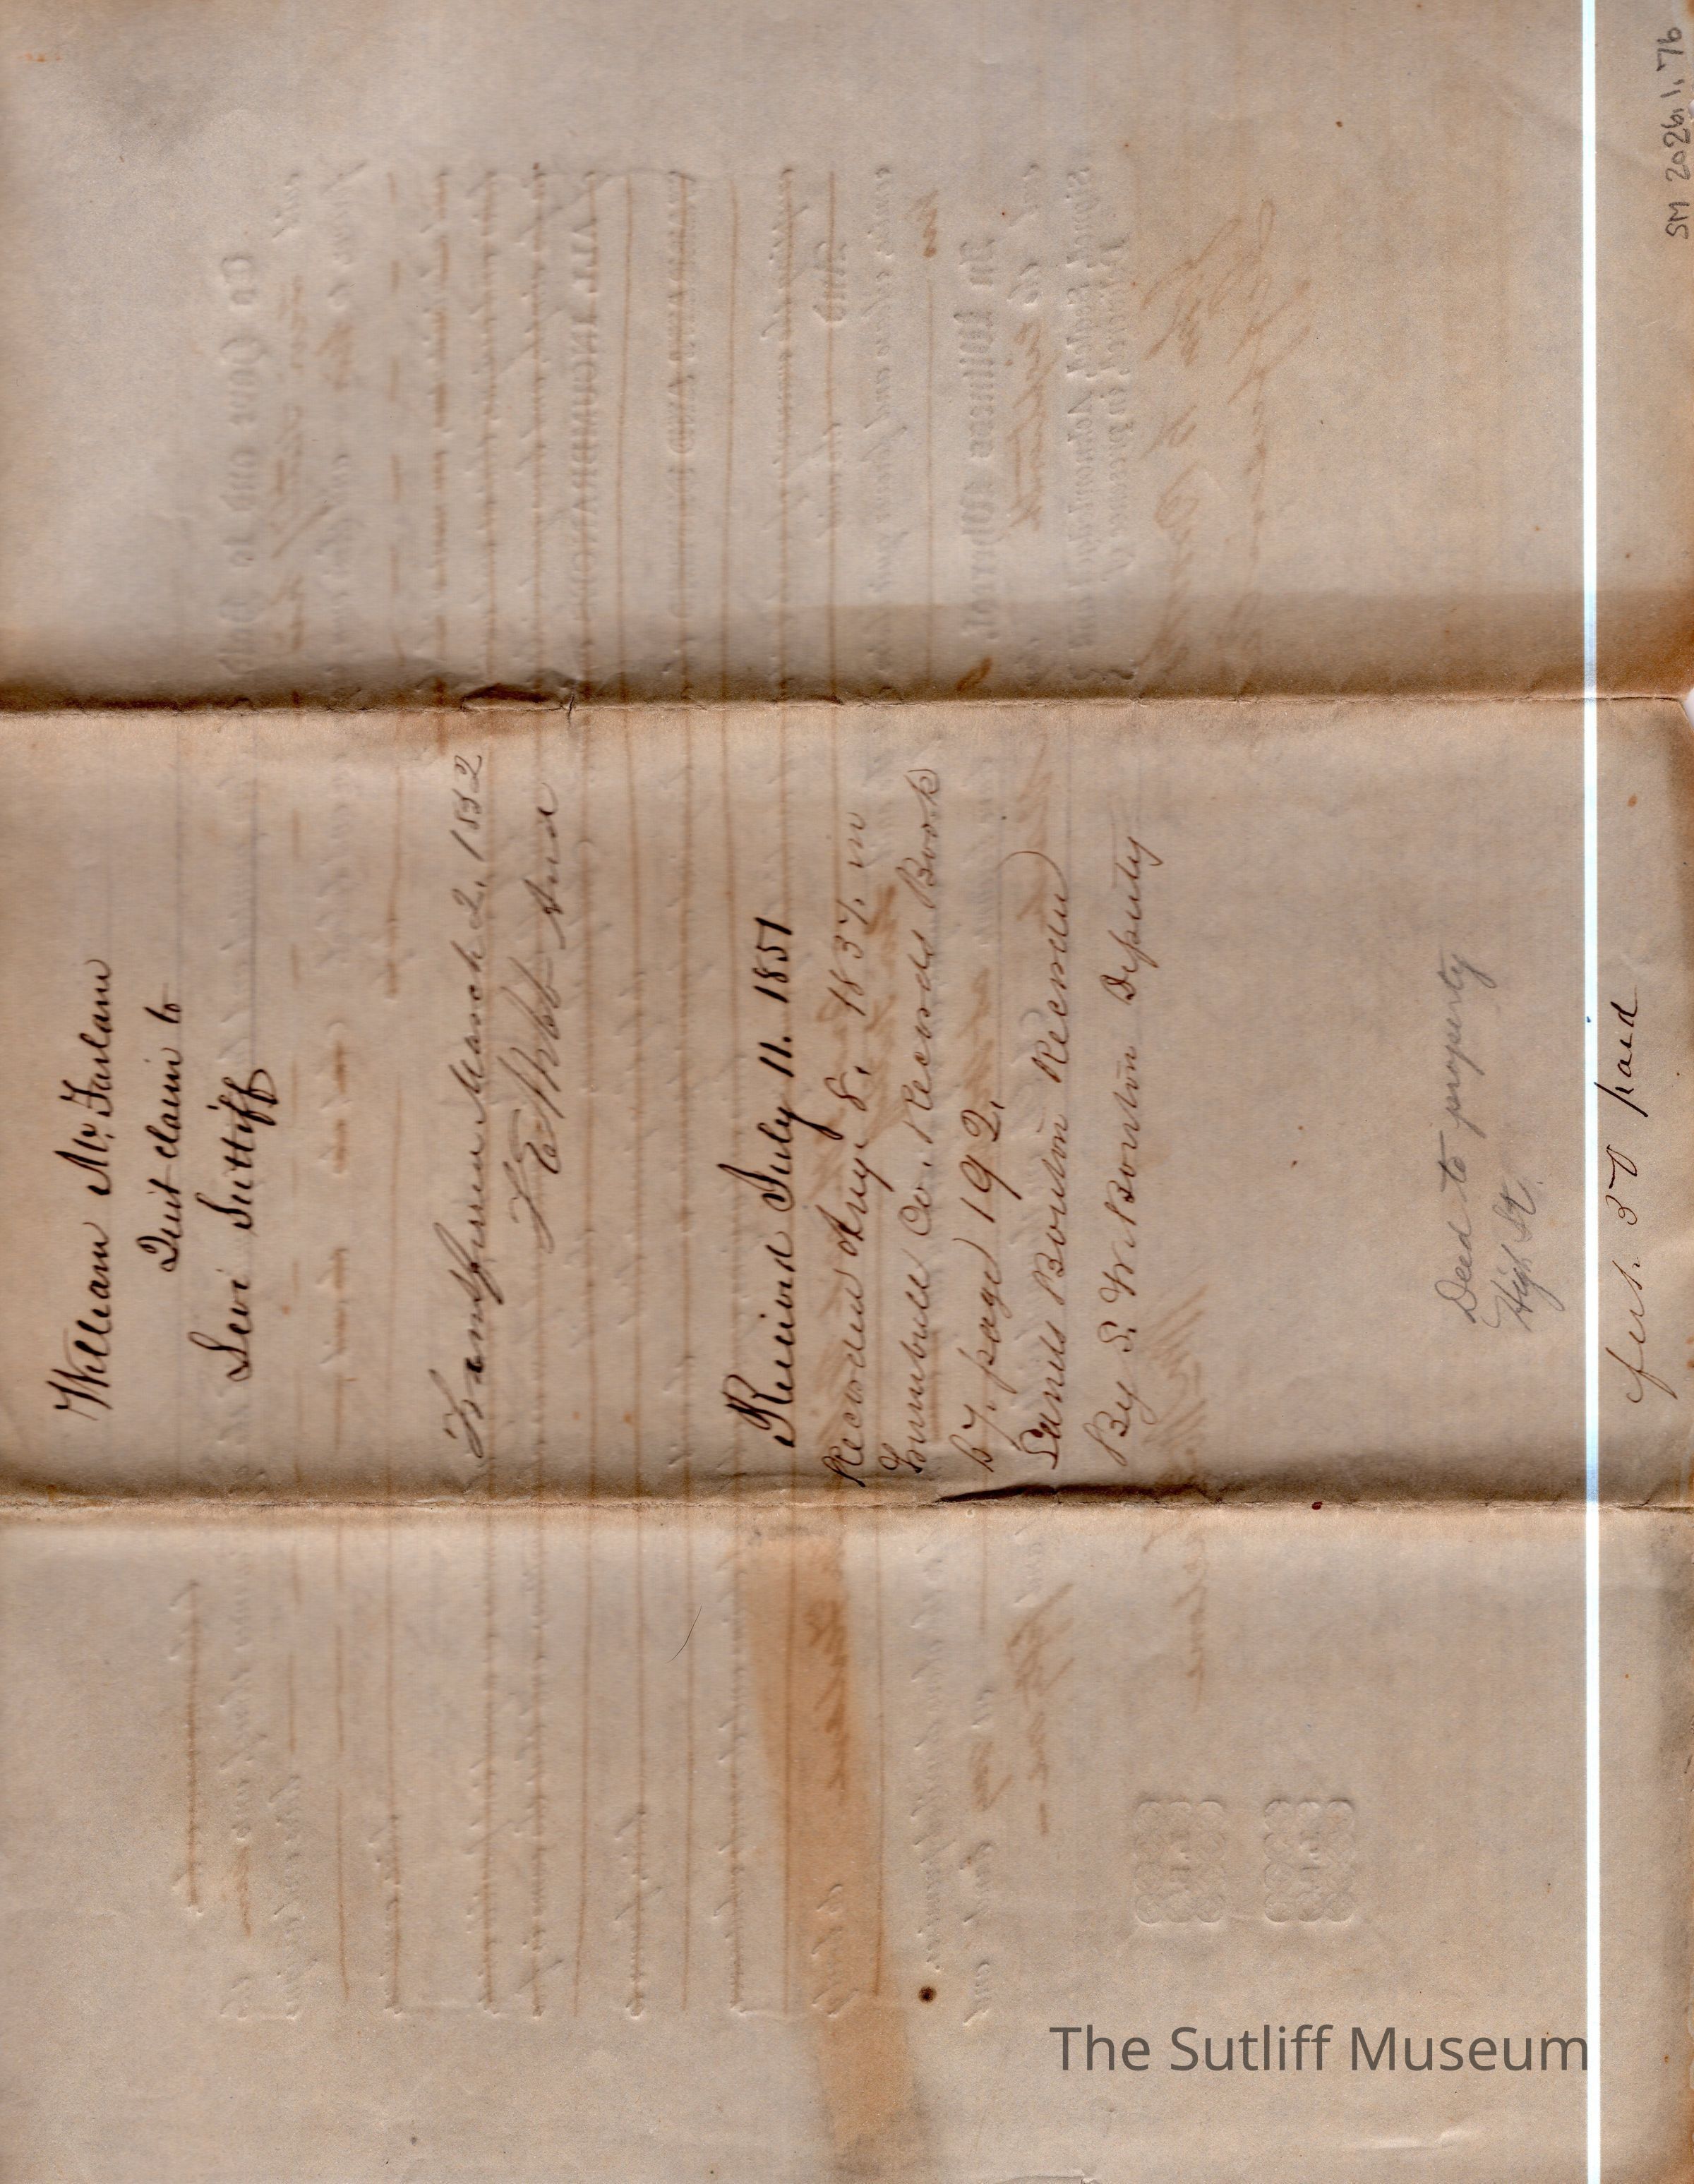 William Mc Farland
Quit claim to
Levi Sutliff
Transferred March 2, 1852
Webb Aud
Received July 11. 1851
Recorded Aug. 8, 1851, in
Trumbull Co. Records Book
page 192,
Bouton Recorder
By S. W. Bouton Deputy
Deed to property
High St.
fees. 30 paid
SM 2026.1.76
The Sutliff Museum